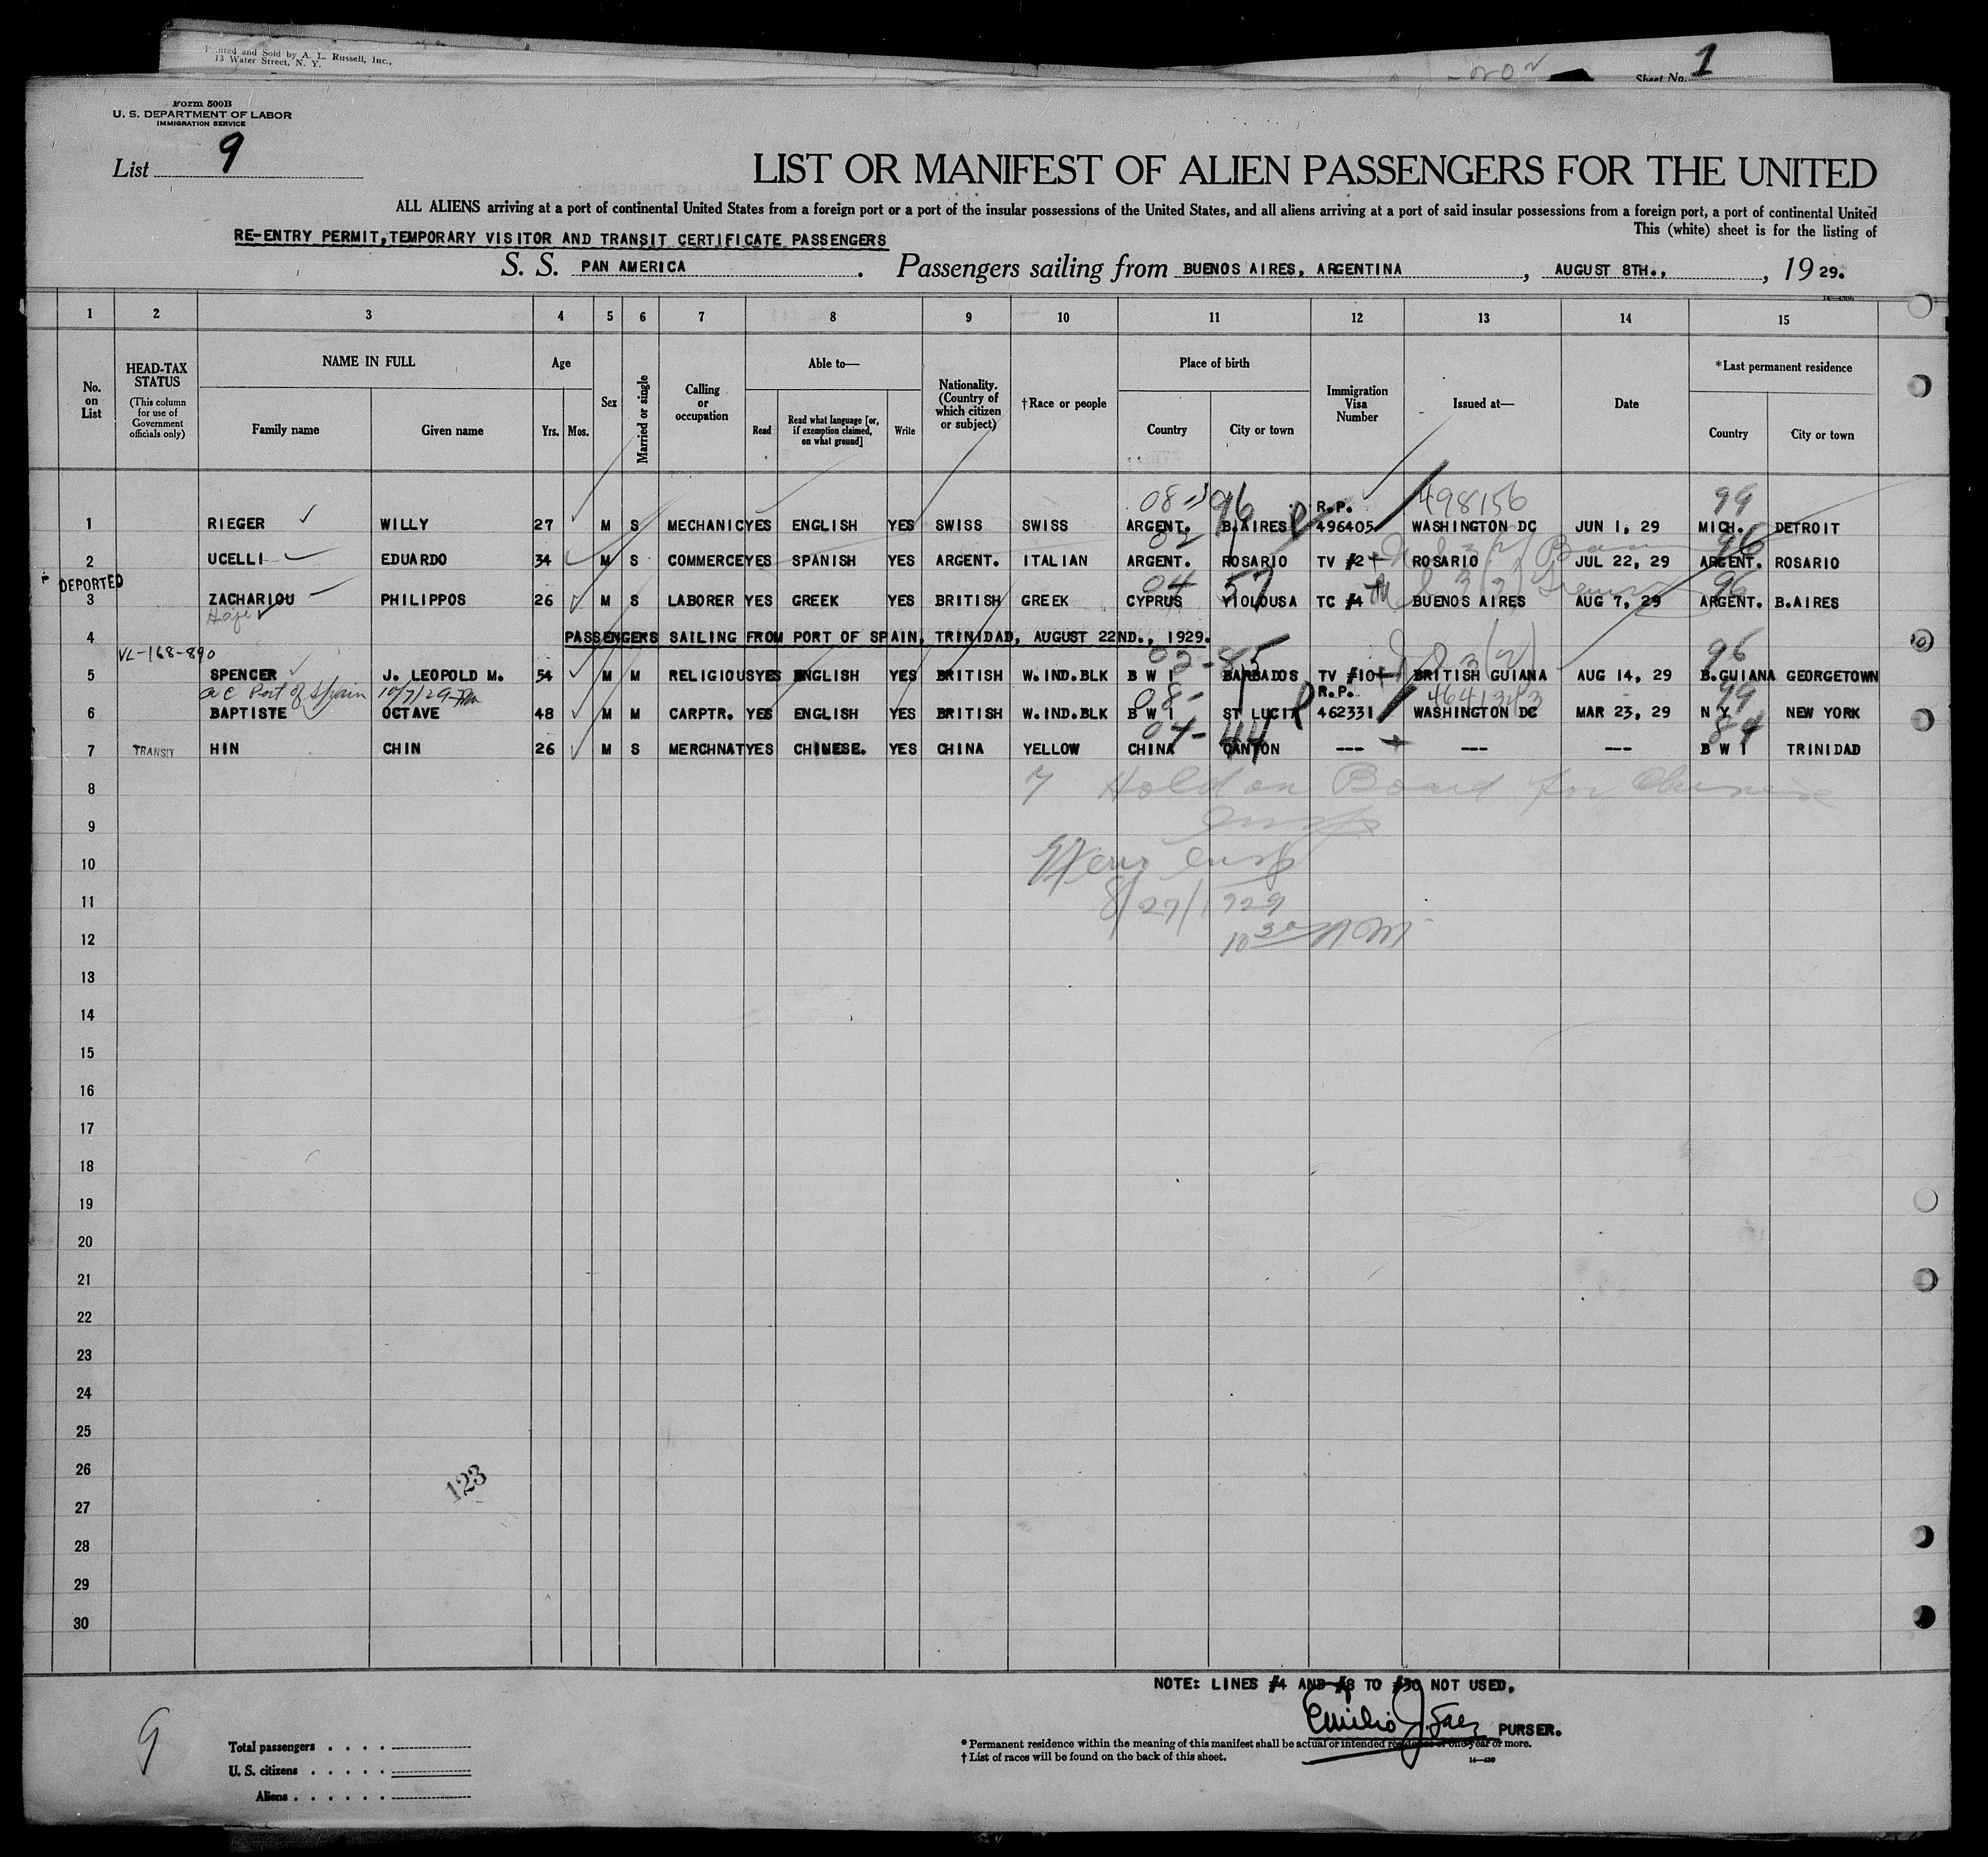 Printed and Sold by A. L. Russell, Inc.,
13 Water Street, N. Y.
Sheet No. 1
Form 500B
U. S. DEPARTMENT OF LABOR
IMMIGRATION SERVICE
List 9
LIST OR MANIFEST OF ALIEN PASSENGERS FOR THE UNITED
ALL ALIENS arriving at a port of continental United States from a foreign port or a port of the insular possessions of the United States, and all aliens arriving at a port of said insular possessions from a foreign port, a port of continental United
This (white) sheet is for the listing of
RE-ENTRY PERMIT, TEMPORARY VISITOR AND TRANSIT CERTIFICATE PASSENGERS
S. S. PAN AMERICA. Passengers sailing from BUENOS AIRES, ARGENTINA, AUGUST 8TH., , 19 29.
1 2 3 4 5 6 7 8 9 10 11 12 13 14 15
No. on List
HEAD-TAX STATUS (This column for use of Government officials only)
NAME IN FULL
Family name Given name
Age
Yrs. Mos.
Sex
Married or single
Calling or occupation
Able to—
Read
Read what language [or, if exemption claimed, on what ground]
Write
Nationality. (Country of which citizen or subject)
†Race or people
Place of birth
Country City or town
Immigration Visa Number
Issued at—
Date
*Last permanent residence
Country City or town
08 96 498156 99
R.P.
1 RIEGER WILLY 27 M S MECHANIC YES ENGLISH YES SWISS SWISS ARGENT. B.AIRES 496405 WASHINGTON DC JUN 1, 29 MICH. DETROIT
02 96
2 UCELLI EDUARDO 34 M S COMMERCE YES SPANISH YES ARGENT. ITALIAN ARGENT. ROSARIO TV #2 ROSARIO JUL 22, 29 ARGENT. ROSARIO
DEPORTED
04 57 3(2) 96
3 ZACHARIOU PHILIPPOS 26 M S LABORER YES GREEK YES BRITISH GREEK CYPRUS YIOLOUSA TC #4 BUENOS AIRES AUG 7, 29 ARGENT. B.AIRES
Haji
4 PASSENGERS SAILING FROM PORT OF SPAIN, TRINIDAD, AUGUST 22ND., 1929.
VL-168-890
02-85 3(2) 96
5 SPENCER J. LEOPOLD M. 54 M M RELIGIOUS YES ENGLISH YES BRITISH W.IND.BLK B W I BARBADOS TV #10 BRITISH GUIANA AUG 14, 29 B.GUIANA GEORGETOWN
Port of Spain 10/7/29
08- R.P. 99
6 BAPTISTE OCTAVE 48 M M CARPTR. YES ENGLISH YES BRITISH W.IND.BLK B W I ST LUCIA 462331 WASHINGTON DC MAR 23, 29 N Y NEW YORK
04-44 84
7 TRANSIT HIN CHIN 26 M S MERCHNAT YES CHINESE. YES CHINA YELLOW CHINA CANTON --- --- --- B W I TRINIDAD
8
7 Hold on Board for Chinese
9
Insp
10
Insp
11
8/27/1929
12
10 30 AM
13
14
15
16
17
18
19
20
21
22
23
24
25
26
123
27
28
29
30
NOTE: LINES #4 AND #8 TO #30 NOT USED.
Emilio J. Saez PURSER.
9
Total passengers . . . .
U. S. citizens . . . . .
Aliens . . . . . .
* Permanent residence within the meaning of this manifest shall be actual or intended residence of one year or more.
† List of races will be found on the back of this sheet.